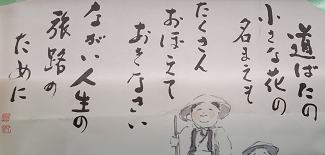 道ばたの
小さな花の
名まえも
たくさん
おぼえて
おきなさい
ながい人生の
旅路の
ために